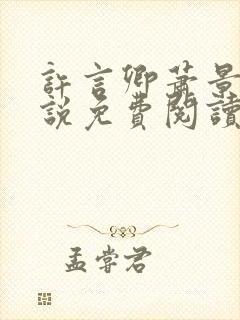 許言卿蕭景
說免費閱讀
孟嘗君